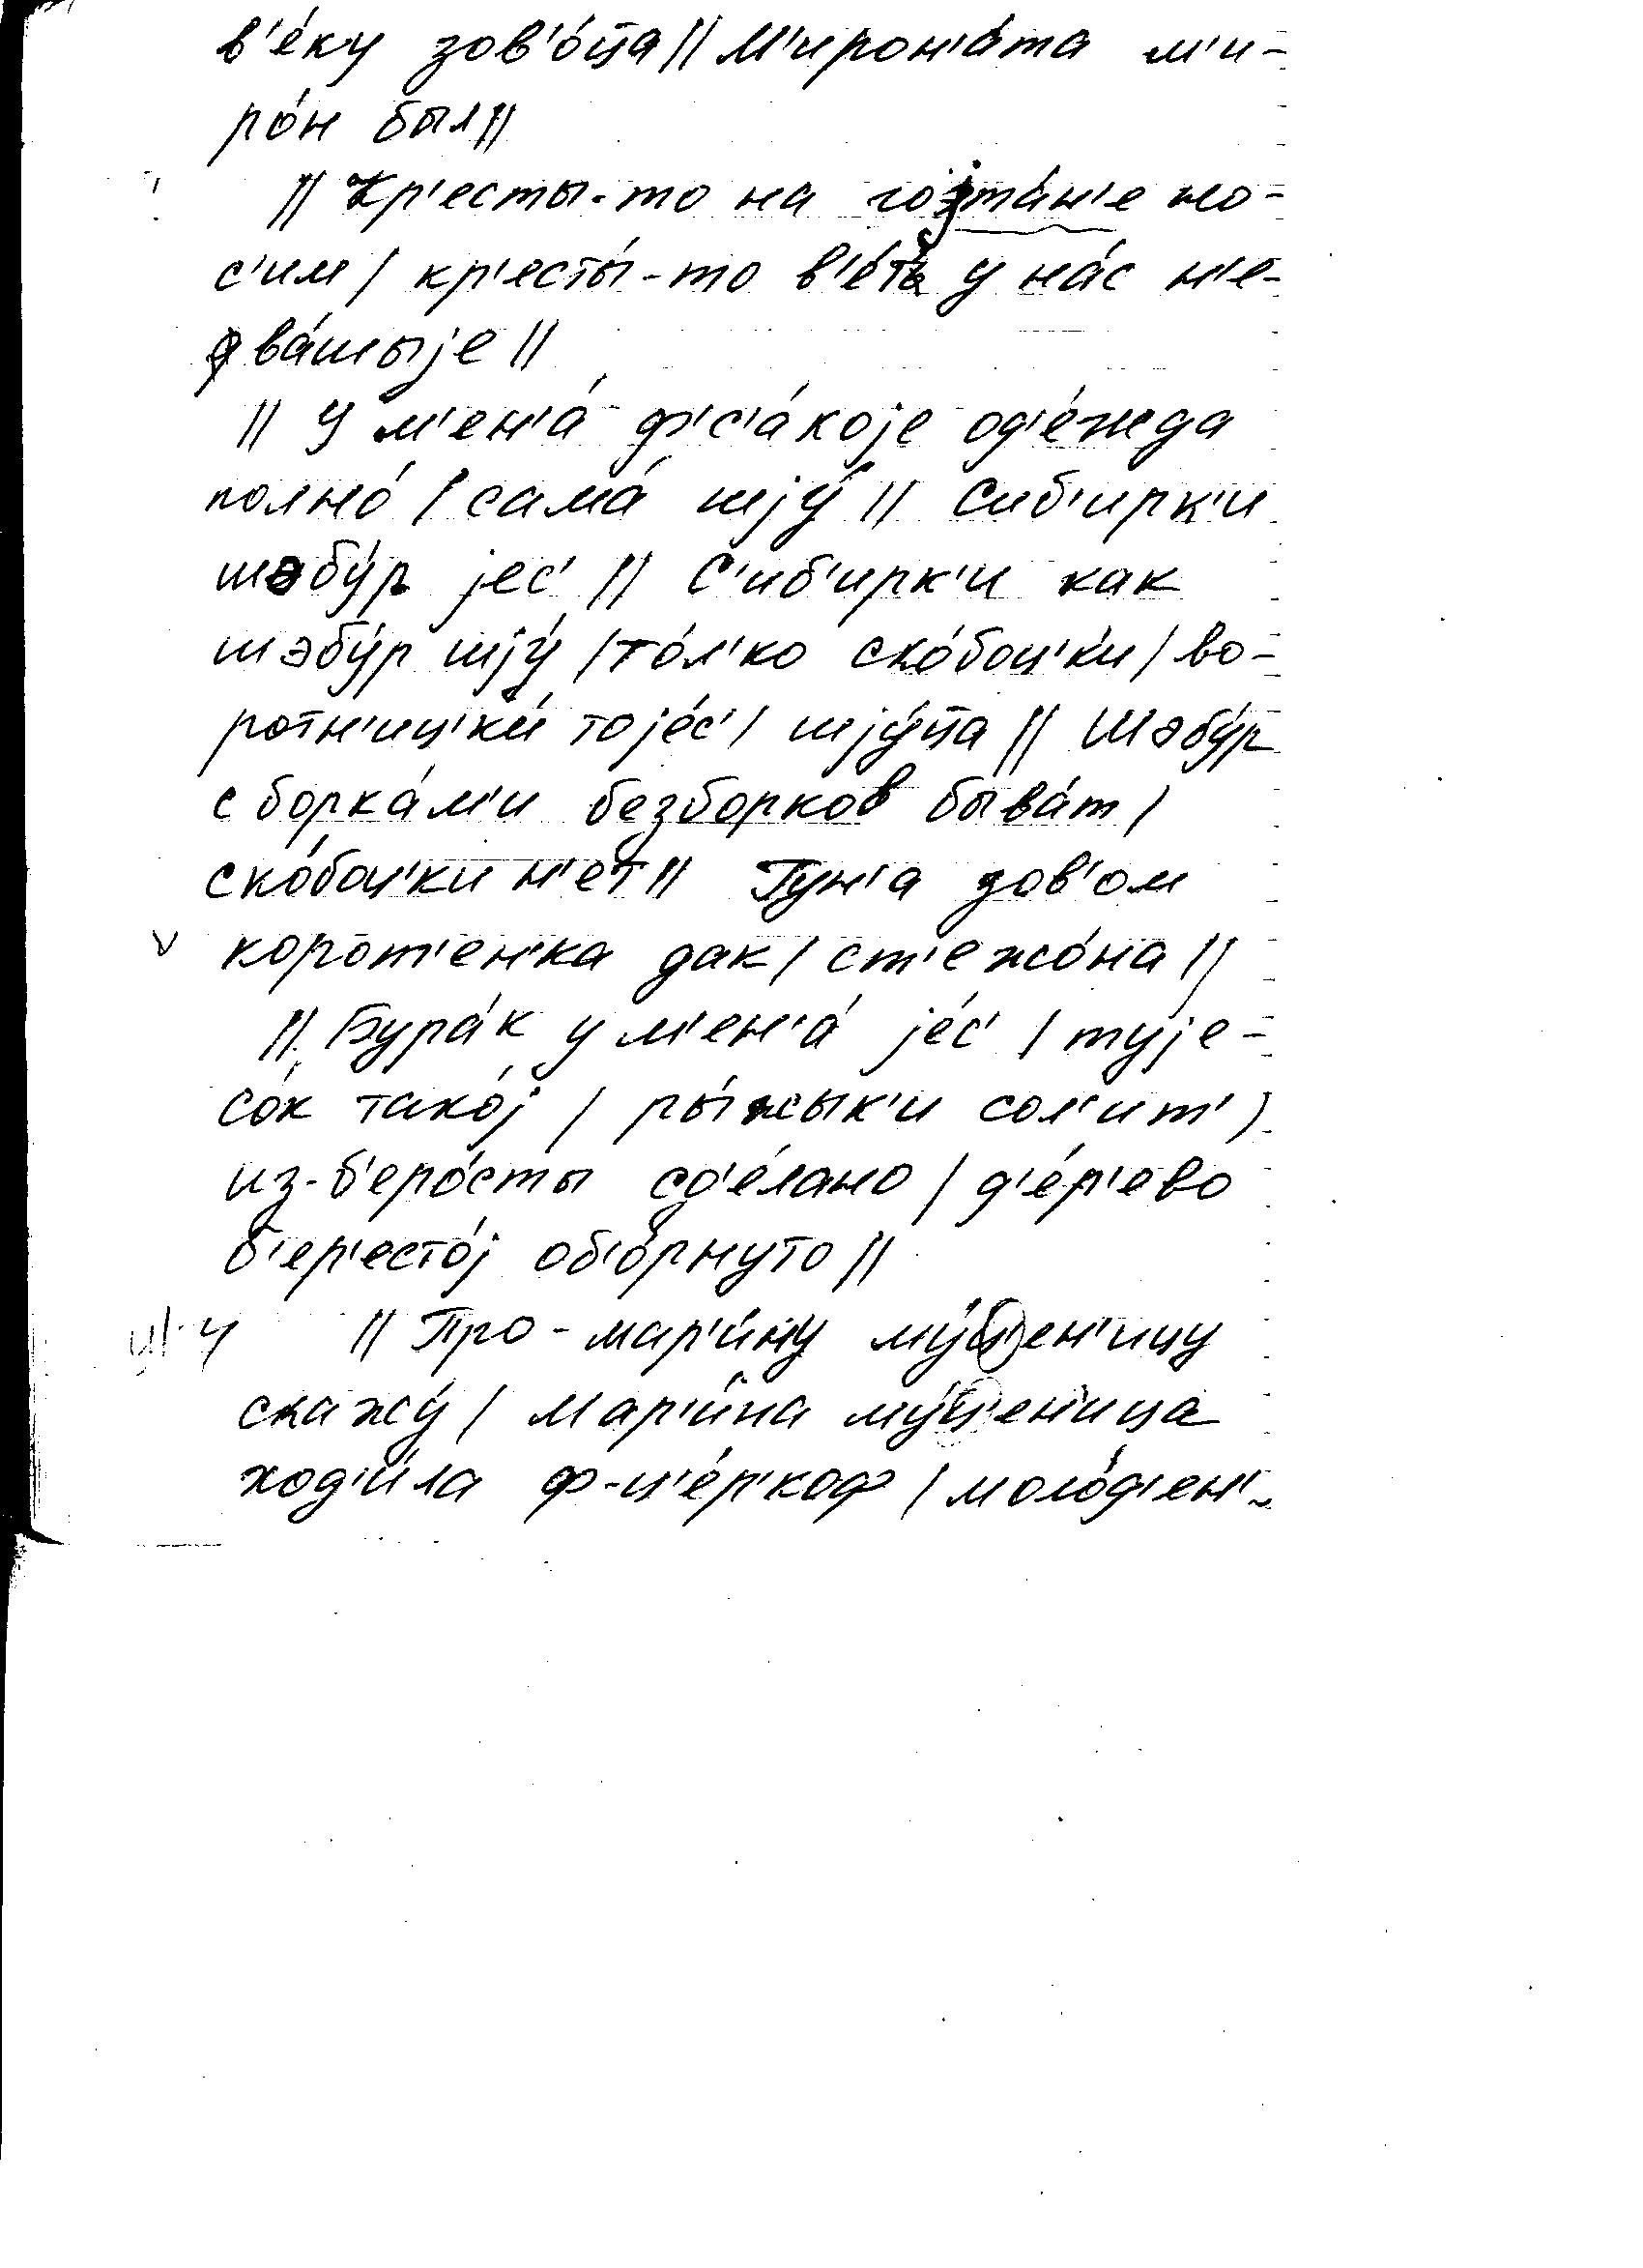 в'е́ку зов'о́ц̅а || М'ирон'а́та м'и-
ро́н был ||
|| Кр'есты-то на гојта́н'е но-
с'им / кр'есты́-то в'е́т' у на́с н'е-
ва́шыjе ||
|| У м'ен'а́ ф'с'а́коjе од'е́жда
полно́ / сама́ шjу́ || Сиб'ирк'и
шэбу́р jес' || С'иб'ирк'и как
шэбу́р шjу́ / то́л'ко ско́боц'к'и / во-
ротн'иц'к'и́ тоjе́с' / шjу́ц̅а || Шэбу́р
с борка́м'и безборков быва́т /
ско́боц'ки н'ет || Гун'а зов'ом
корот'ен'ка дак / ст'ежо́на ||
|| Бура́к у м'ен'а́ jе́с' / туjе-
со́к тако́j / ры́жык'и сол'ит' /
из-б'еро́сты сд'е́лано / д'е́р'ево
б'ер'есто́j об'о́рнуто ||
ц' ч || Про-мар'и́ну му́ц'ен'ицу
скажу́ / Мар'и́на му́ц'ен'ица
ход'и́ла ф-ц'е́р'коф / моло́д'ен'-